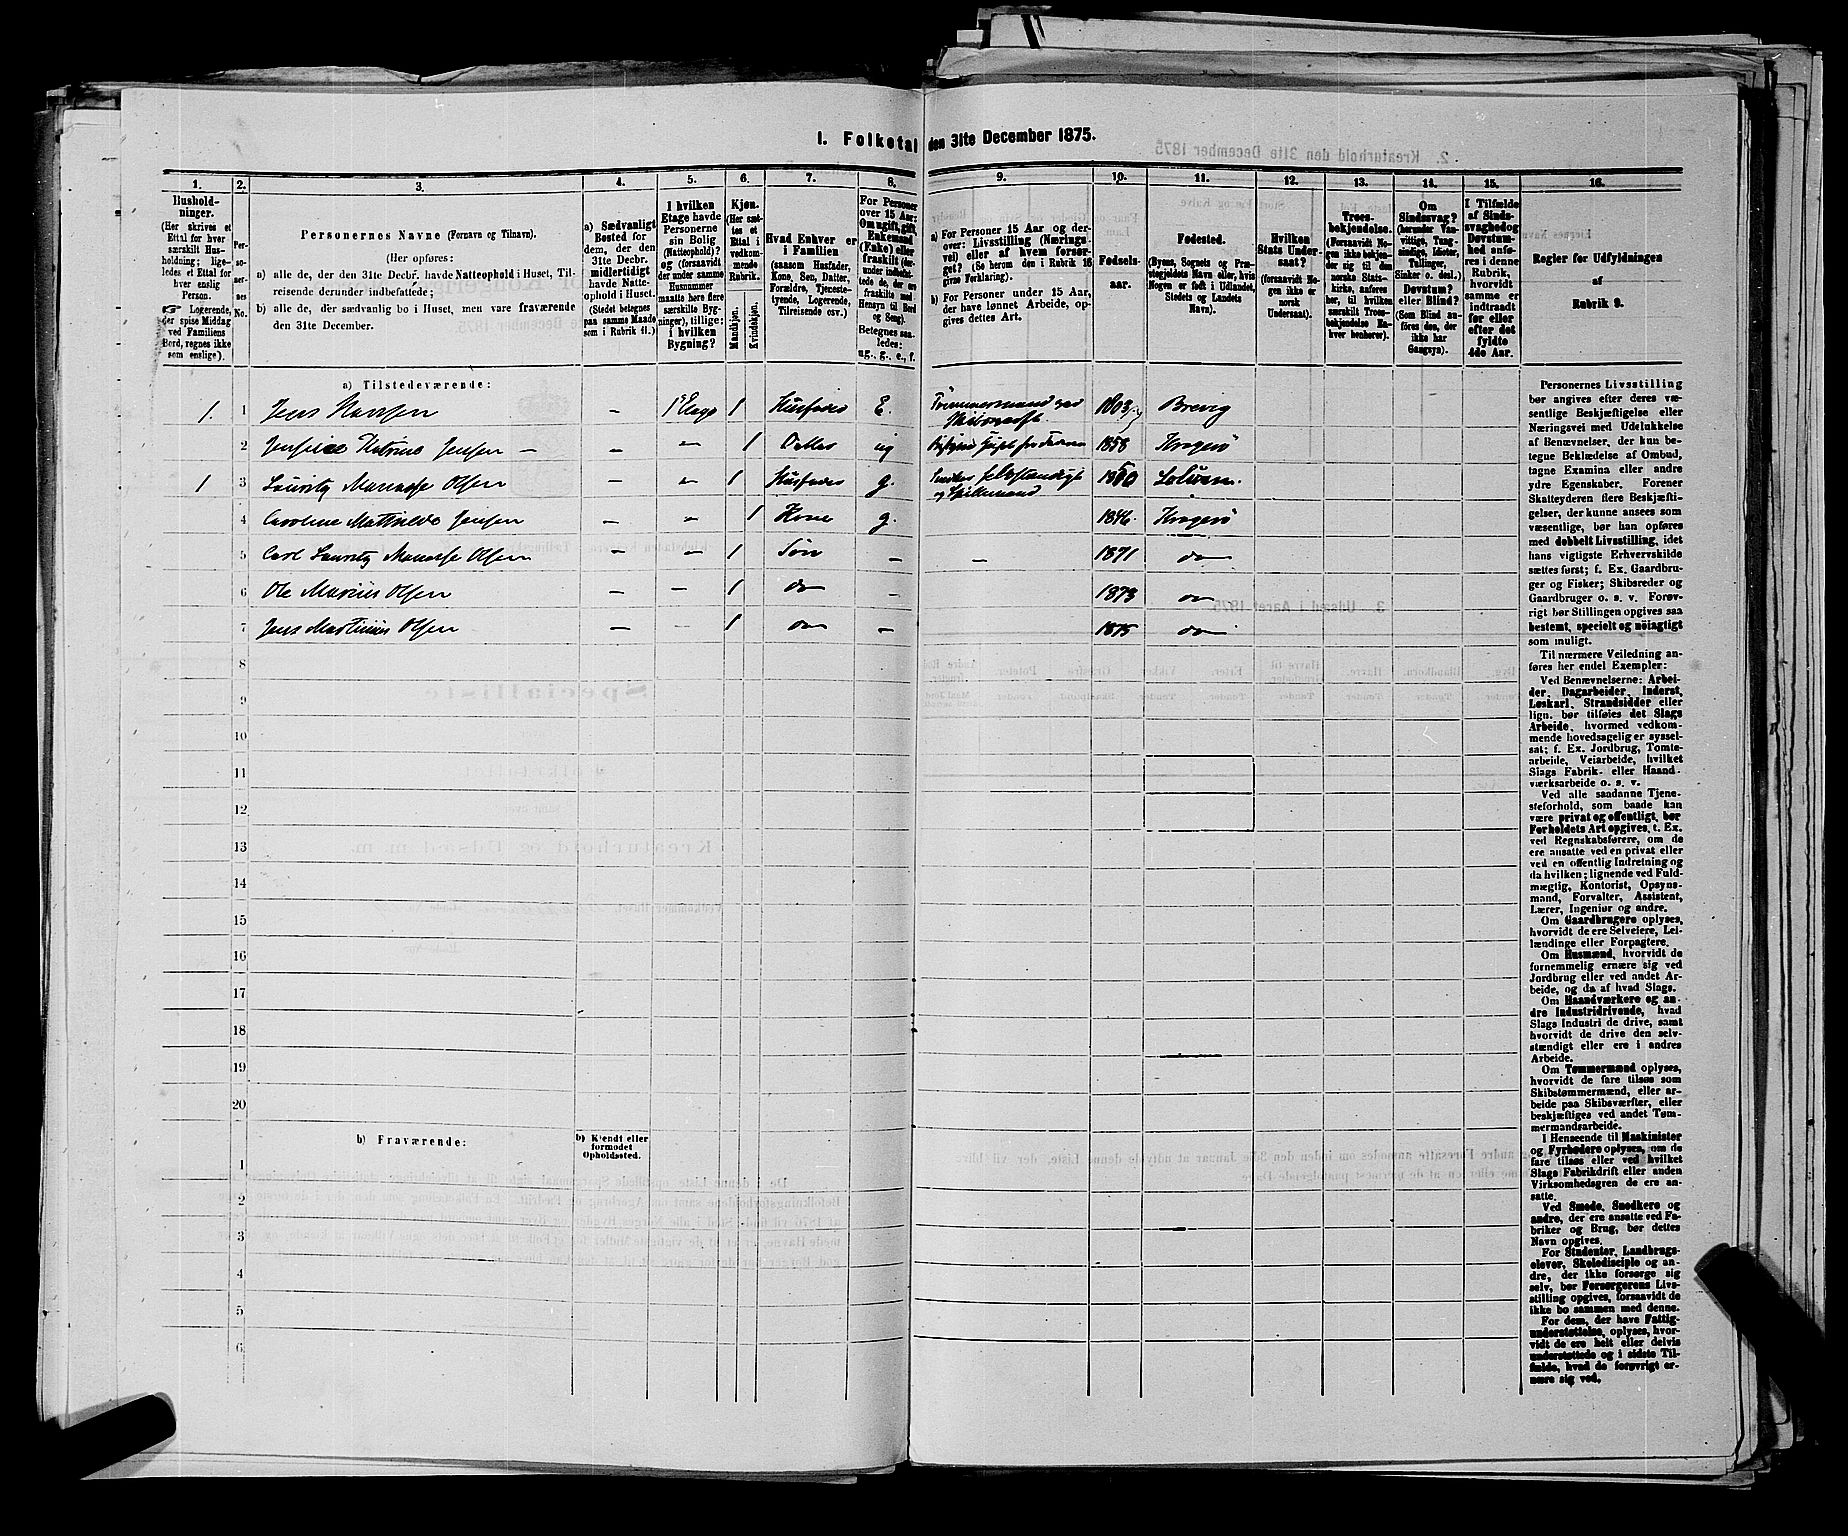 1. Folketal den 31te December 1875.
1. 2. 3. 4. 5. 6. 7. 8. 9. 10. 11. 12. 13. 14. 15. 16.
Husholdninger.
(Her skrives et
Ettal for hver
særskilt Husholdning;
ligeledes et Ettal for
hver enslig
Person.
Logerende,
der spise Middag
ved Familiens
Bord, regnes ikke
som enslige).
Personernes No.
Personernes Navne (Fornavn og Tilnavn).
(Her opføres:
a) alle de, der den 31te Decbr. havde Natteophold i Huset, Tilreisende
derunder indbefattede;
b) alle de, der sædvanlig bo i Huset, men vare fraværende
den 31te December.
a) Sædvanligt
Bosted for
dem, der den
31te Decbr.
midlertidigt
havde Natteophold
i Huset.
(Stedet betegnes
paa samme Maade
som i Rubrik 11.)
I hvilken
Etage havde
Personerne
sin Bolig
(Natteophold)?
(forsaavidt
der under samme
Husnummer
maatte høre flere
særskilte Bygninger),
tillige:
i hvilken
Bygning?
Kjøn.
(Her sættes
et
Ettal i
vedkommende
Rubrik.)
Mandkjøn.
Kvindekjøn.
Hvad Enhver er
i Familien
(saasom Husfader,
Kone, Søn, Datter,
Forældre, Tjenestetyende,
Logerende,
Tilreisende osv.)
For Personer
over 15 Aar:
Om ugift, gift,
Enkemand
(Enke) eller
fraskilt
Betegnes saaledes:
ug., g., e., f.
a) For Personer 15 Aar og derover:
Livsstilling (Næringsvei)
eller af hvem forsørget?
(Se herom den i Rubrik 16
givne Forklaring).
b) For Personer under 15 Aar,
der have lønnet Arbeide, opgives
dettes Art.
Fødselsaar.
Fødested.
(Byens, Sognets og Præstegjeldets
Navn eller, hvis
Nogen er født i Udlandet,
Stedets og Landets
Navn).
Hvilken
Stats Undersaat?
(forsaavidt
Nogen ikke er
norsk
Undersaat).
Troesbekjendelse.
(Forsaavidt Nogen
ikke bekjender
sig til den
norske Statskirke,
anføres
her, til hvilken
særskilt Troesbekjendelse
Enhver
henhører).
Om
Sindssvag?
(herunder Vanvittige,
Tungsindige,
Idioter,
Tullinger,
Sinker o. desl.)
Døvstum?
eller Blind?
(Som Blind anføres
den, der
ikke har
Gangsyn).
I Tilfælde
af Sindssvaghed
og
Døvstumhed
anføres
i denne
Rubrik,
hvorvidt
samme er
indtraadt
før eller
efter det
fyldte
4de Aar.
Regler for Udfyldningen
af
Rubrik 9.
a) Tilstedeværende:
1. 1 Jens Hansen – 1ste Etage 1 Husfader E. Tømmermand ved 1803 Brevig
2 Katrine Jensen – – 1 Datter ug 1858 Kragerø
1 3 Lauritz Manasse Olsen – – 1 Husfader g. Snedker selvstændigt 1850
og Spillemand
4 Caroline Mathilde Jensen – – 1 Kone g. 1846 Kragerø
5 Carl Lauritz Manasse Olsen – – 1 Søn – – 1871 do
6 Ole Marius Olsen – – 1 do – 1873 do
7 Jens Martinius Olsen – – 1 do – 1875 do
8
9
10
11
12
13
14
15
16
17
18
19
20
b) Fraværende:
b) Kjendt eller
formodet
Opholdssted.
1
2
3
4
5
6
Personernes Livsstilling
bør angives efter deres væsentlige
Beskjæftigelse eller
Næringsvei med Udelukkelse
af Benævnelser, der kun betegne
Beklædelse af Ombud,
tagne Examina eller andre
ydre Egenskaber. Forener
Skatteyderen flere Beskjæftigelser,
der kunne ansees som
væsentlige, bør han opføres
med dobbelt Livsstilling, idet
hans vigtigste Erhvervskilde
sættes først; f. Ex. Gaardbruger
og Fisker; Skibsreder og
Gaardbruger o. s. v. Forøvrigt
bør Stillingen opgives saa
bestemt, specielt og nöiagtigt
som muligt.
Til nærmere Veiledning anføres
her endel Exempler:
Ved Benævnelserne: Arbeider,
Dagarbeider, Inderst,
Løskarl, Strandsidder eller
lign. bør tilføies det Slags
Arbeide, hvormed vedkommende
hovedsagelig er sysselsat;
f. Ex. Jordbrug, Tomtearbeide,
Veiarbeide, hvilket
Slags Fabrik- eller Haandværksarbeide
o. s. v.
Ved alle saadanne Tjenesteforhold,
som baade kan
være privat og offentligt, bør
Forholdets Art opgives, t. Ex.
ved Regnskabsførere, om de
ere ansatte ved en privat eller
ved en offentlig Indretning og
da hvilken; lignende ved Fuldmægtig,
Kontorist, Opsynsmand,
Forvalter, Assistent,
Lærer, Ingeniør og andre.
Om Gaardbrugere oplyses,
hvorvidt de ere Selveiere, Leilændinge
eller Forpagtere.
Om Husmænd, hvorvidt de
fornemmelig ernære sig ved
Jordbrug eller ved andet Arbeide,
og da af hvad Slags.
Om Haandværkere og andre
Industridrivende, hvad
Slags Industri de drive, samt
hvorvidt de drive den selvstændigt
eller ere i andres
Arbeide.
Om Tømmermænd oplyses,
hvorvidt de fare tilsøs som
Skibstømmermænd, eller arbeide
paa Skibsværfter, eller
beskjæftiges ved andet Tømmermandsarbeide.
I Henseende til Maskinister
og Fyrbødere oplyses, om de
fare tilsøs eller ved hvilket
Slags Fabrikdrift eller anden
Virksomhedsgren de ere ansatte.
Ved Smede, Snedkere og
andre, der ere ansatte ved Fabriker
og Brug, bør dettes
Navn opgives.
For Studenter, Landbrugselever,
Skoledisciple og andre,
der ikke forsørge sig
selv, bør Forsørgerens Livsstilling
opgives, forsaavidt de
ikke bo sammen med denne.
For dem, der have Fattigunderstøttelse,
oplyses, hvorvidt
de ere helt eller delvis
understøttede og i sidste Tilfælde,
hvad de forøvrigt ernære
sig ved.